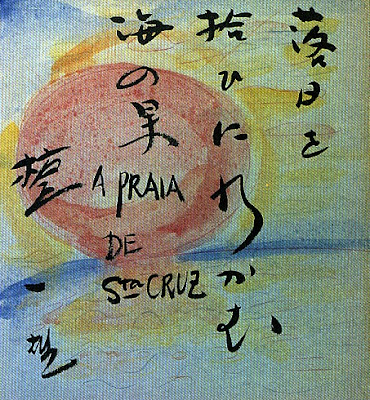 落日を
拾ひに行かむ
海の果
A PRAIA
DE
Sta CRUZ
檀一雄